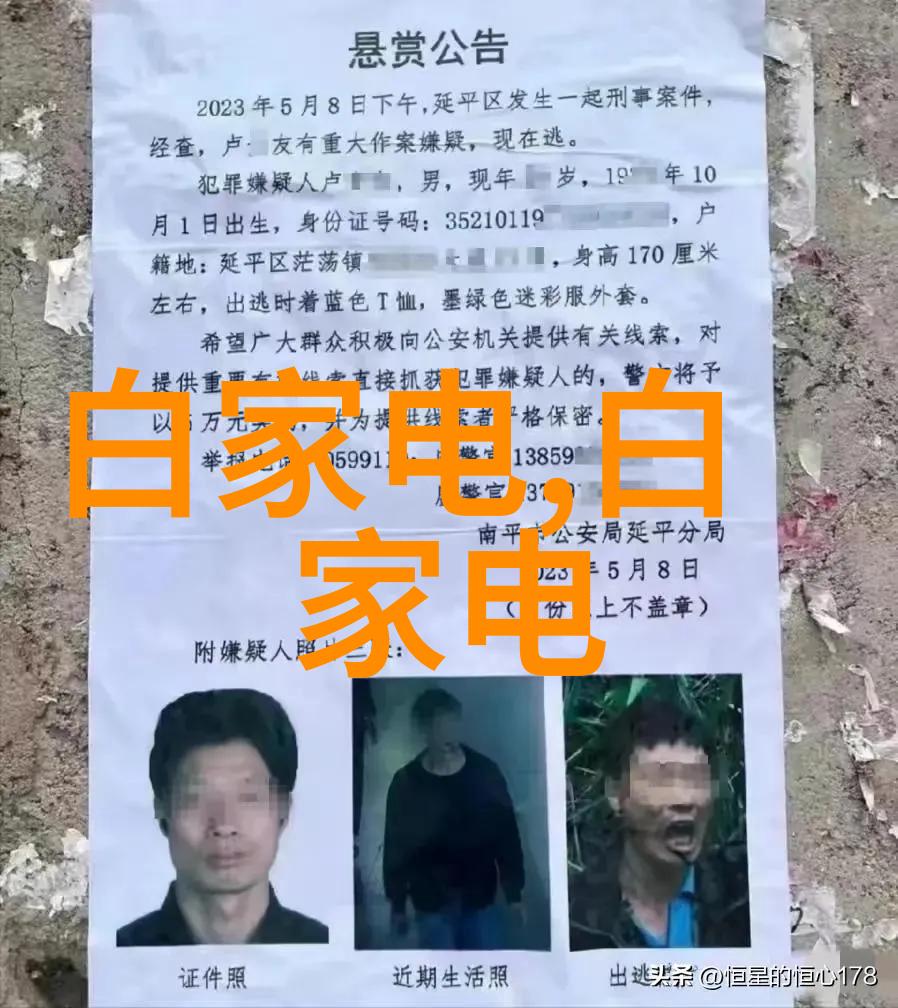 悬赏公告
2023年5月8日下午,延平区发生一起刑事案件,
经查,卢 友有重大作案嫌疑,现在逃。
犯罪嫌疑人卢 ,男,现年 岁,19 年10
月1日出生,身份证号码:35210119 ,户
籍地:延平区茫荡镇 ,身高170厘米
左右,出逃时着蓝色T恤,墨绿色迷彩服外套。
希望广大群众积极向公安机关提供有关线索,对
提供重要 线索直接抓获犯罪嫌疑人的,警 将予
以 万元 ,并为提供线索者严格保密。
举报 059911 警官 13859
警官 37
南平市公安局延平分局
2023年5月8日
( 份 上不盖章)
附嫌疑人照片三 :
白家电,白
家电
证件照
近期生活照
出逃
头条 @恒星的恒心178